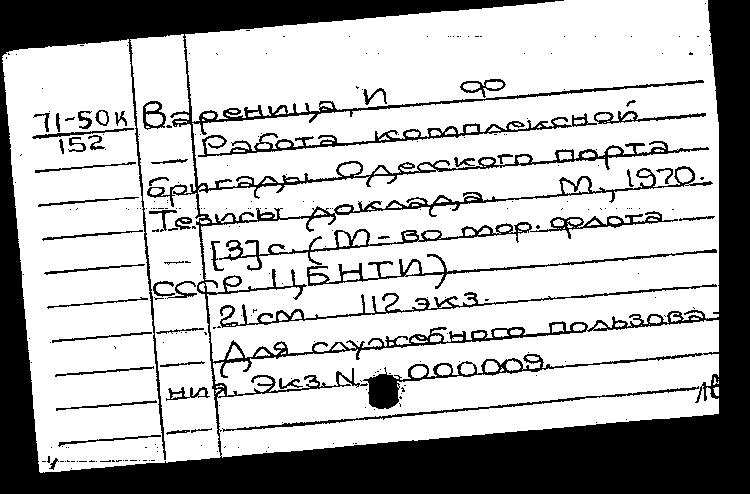 71-50к Вареница, И ФО
152 Работа комплексной
бригады Одесского порта
Тезисы доклада. М., 1970.
[3]с. (М-во мор. флота
СССР. ЦБНТИ)
21 см. 112 экз.
Для служебного пользова-
ния. Экз. N 000009.